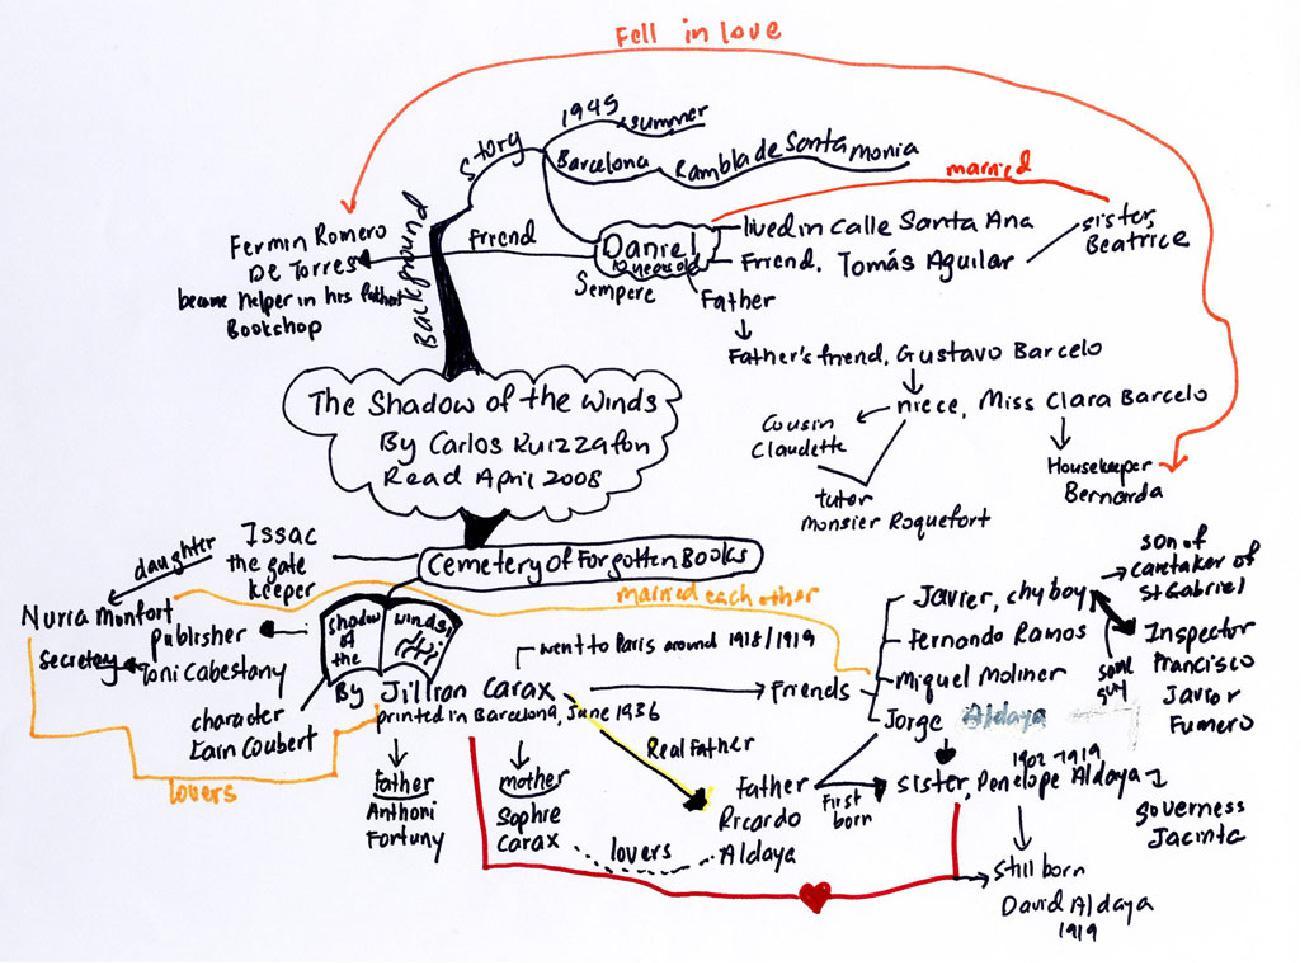 Fell in love
1945
summer
Story
Barcelona
Rambla de Santa monia
married
Background
Fermin Romero
De Torres
became helper in his father
Bookshop
friend
Daniel
Sempere
lived in calle Santa Ana
Friend, Tomás Aguilar
sister,
Beatrice
Father
Father's friend, Gustavo Barcelo
niece, Miss Clara Barcelo
cousin
Claudette
tutor
monsier Roquefort
Housekeeper
Bernarda
The Shadow of the Winds
By Carlos Ruizzafon
Read April 2008
Cemetery of Forgotten Books
Issac
the gate
keeper
daughter
Nuria Monfort
publisher
Toni Cabestany
secretary
married each other
shadow
of
the
winds
By Jillian Carax
printed in Barcelona, June 1936
character
Lain Coubert
lovers
went to Paris around 1918/1919
Friends
Javier, chy boy
Fernando Ramos
Miquel Moliner
Jorge Aldaya
son of
caretaker of
St Gabriel
same
guy
Inspector
Francisco
Javior
Fumero
Father
Anthoni
Fortuny
mother
Sophie
Carax
lovers
Real Father
Father
Ricardo
Aldaya
First
born
1902-1919
sister, Penelope Aldaya
governess
Jacinta
still born
David Aldaya
1919